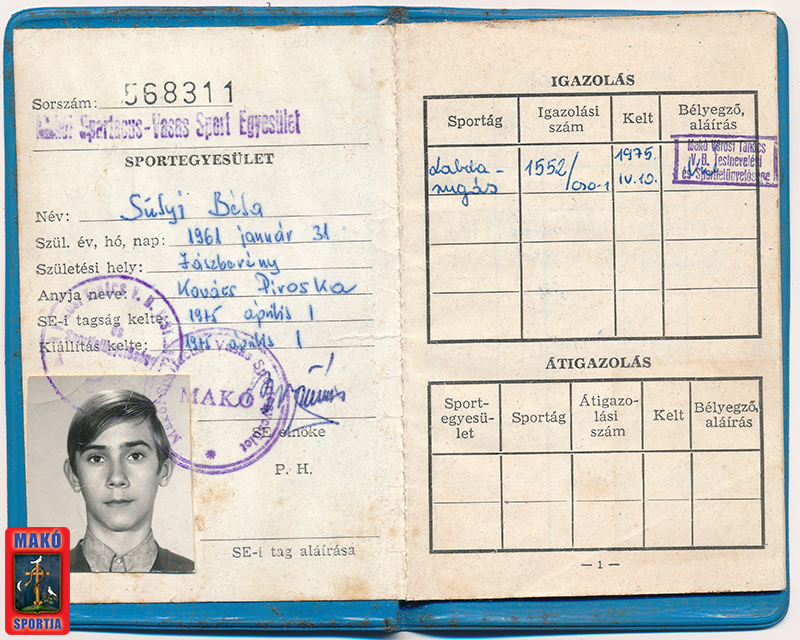 Sorszám: 568311
Makói Spartacus-Vasas Sport Egyesület
SPORTEGYESÜLET
Név: Súlyi Béla
Szül. év, hó, nap: 1961 január 31
Születési hely: Jászberény
Anyja neve: Kovács Piroska
SE-i tagság kelte: 1975 április 1
Kiállítás kelte: 1975 április 1
MAKÓ
SE elnöke
P. H.
SE-i tag aláírása
MAKÓ
SPORTJA
IGAZOLÁS
Sportág Igazolási szám Kelt Bélyegző, aláírás
Labda-rugás 1552/cso-1 1975. IV.10.
Makó Városi Tanács
V. B. Testnevelési
és Sportfelügyelősége
ÁTIGAZOLÁS
Sport-egyesü-let Sportág Átigazo-lási szám Kelt Bélyegző, aláírás
— 1 —